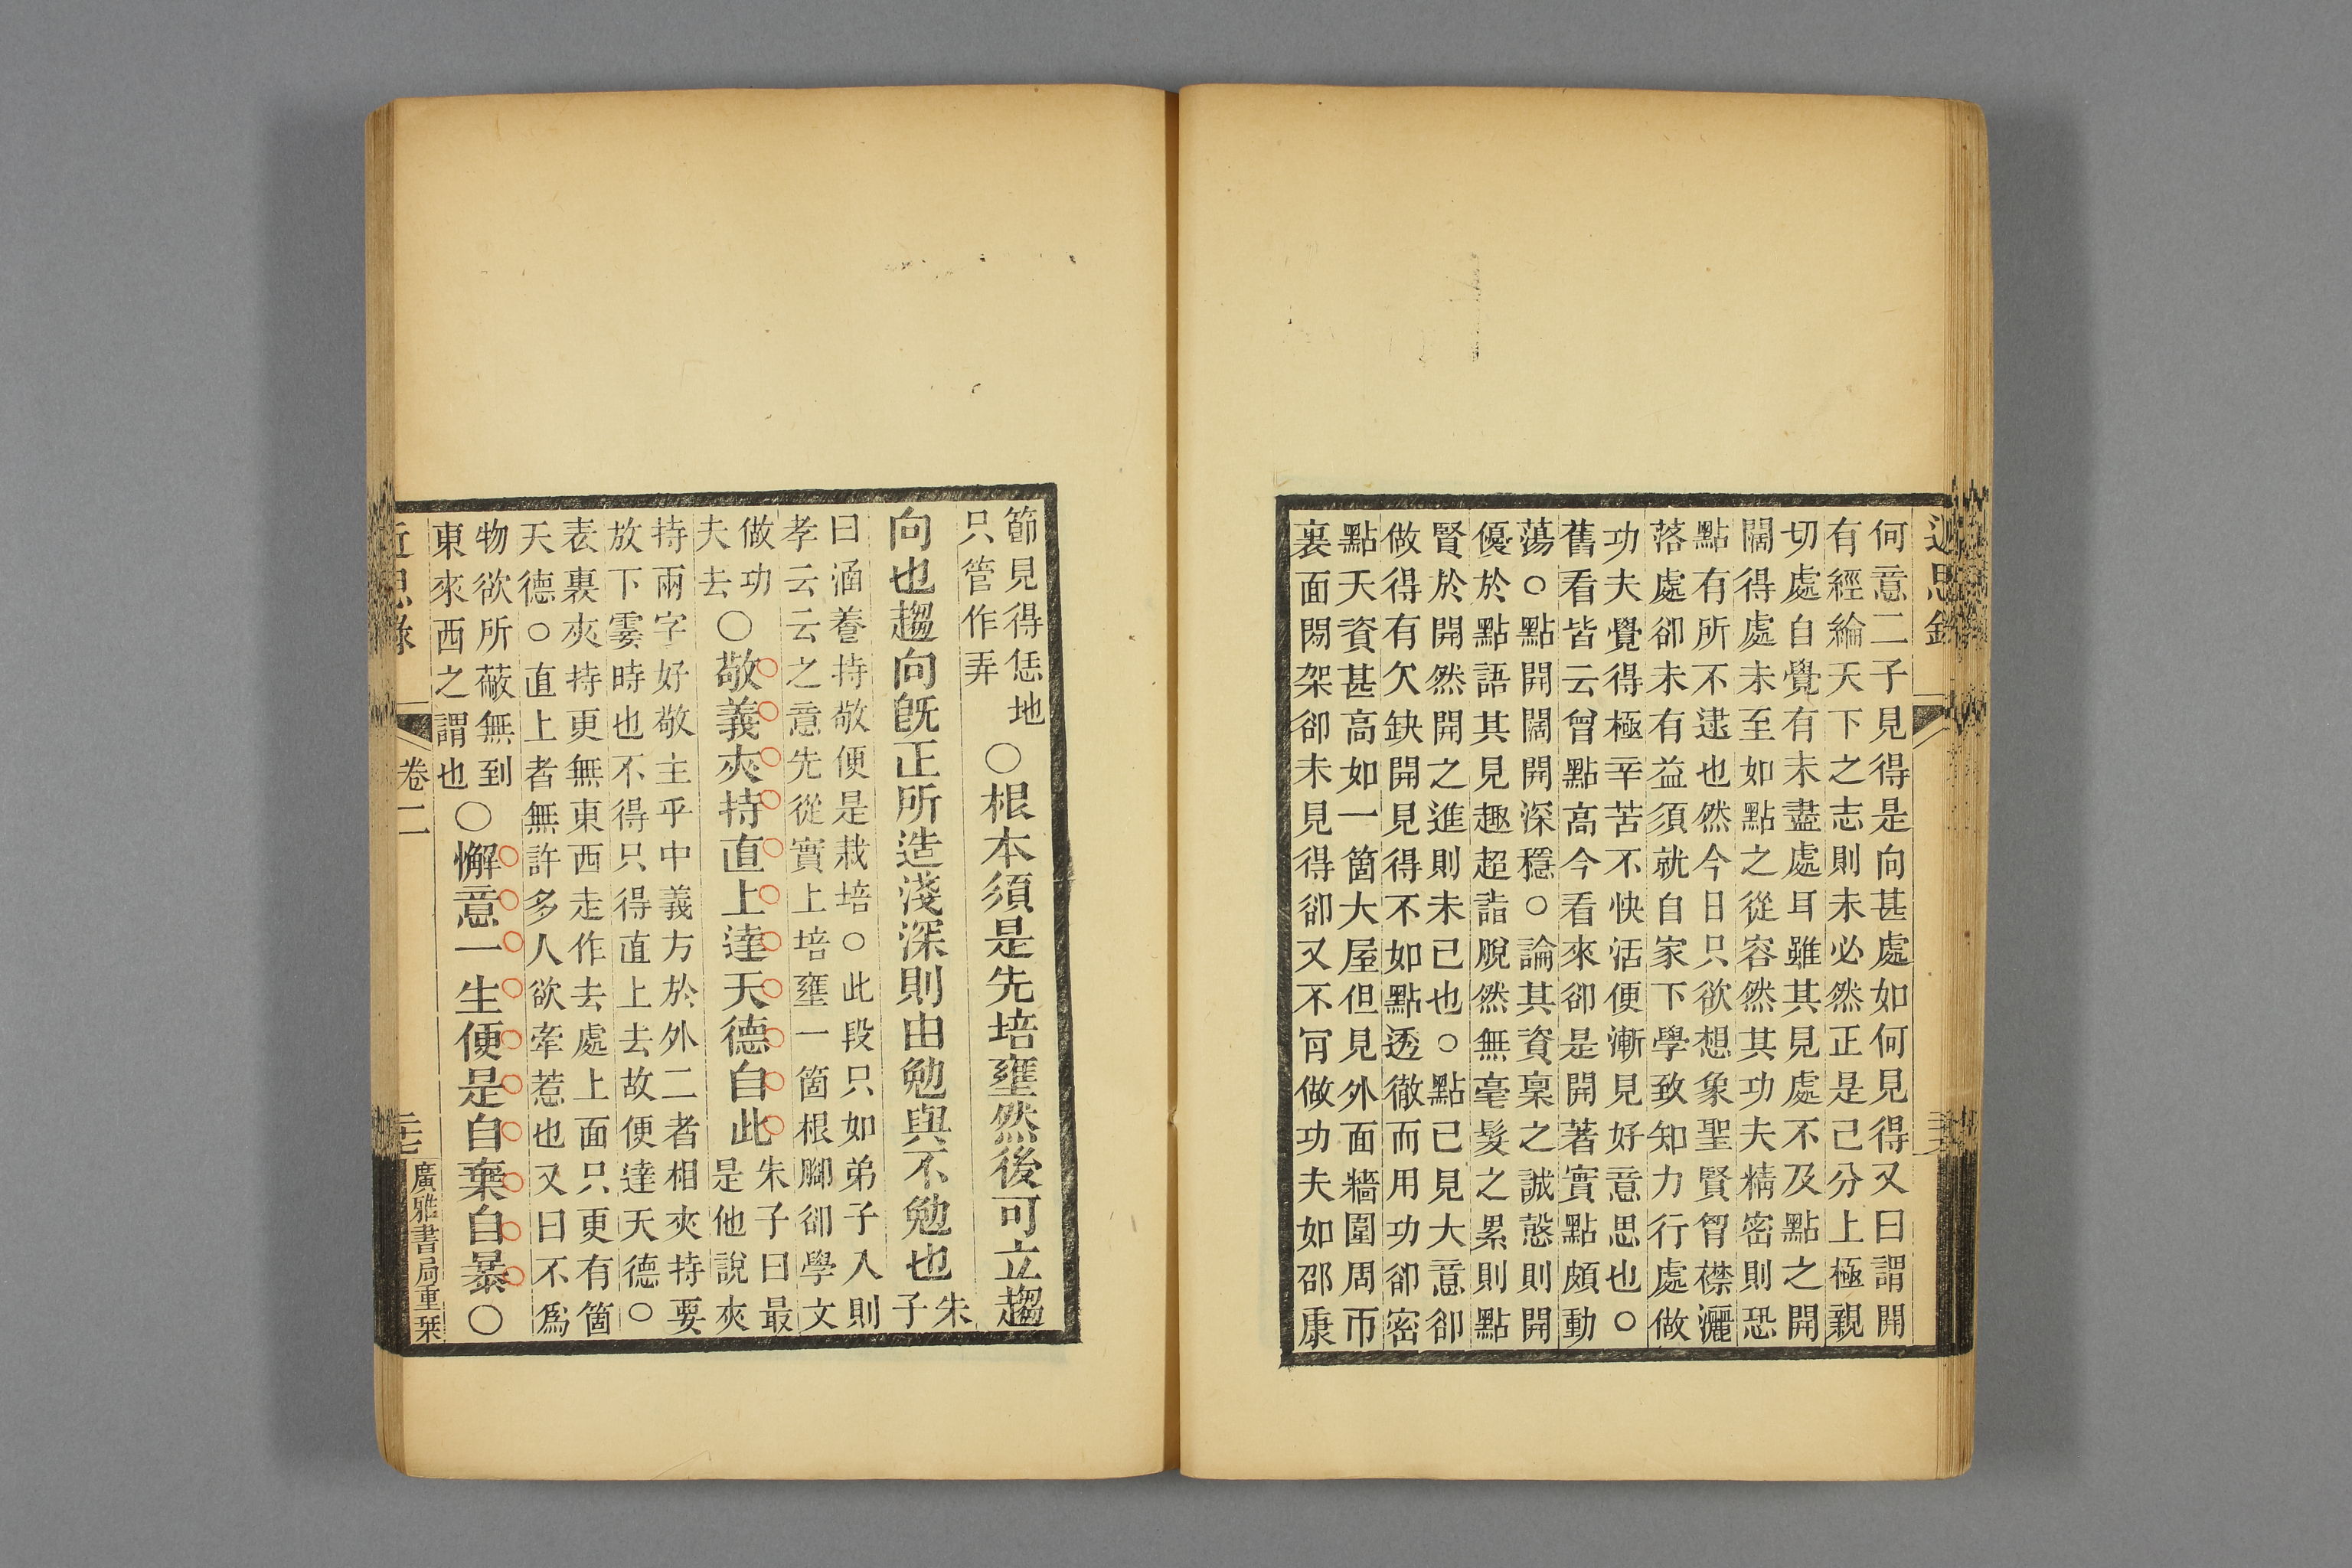 近思錄
何意二子見得是向甚處如何見得又曰謂開
有經綸天下之志則未必然正是己分上極親
切處自覺有未盡處耳雖其見處不及點之開
闊得處未至如點之從容然其功夫精密則恐
點有所不逮也然今日只欲想象聖賢胷襟灑
落處卻未有益須就自家下學致知力行處做
功夫覺得極辛苦不快活便漸見好意思也○
舊看皆云曾點高今看來卻是開著實點頗動
蕩○點開闊開深穩○論其資稟之誠慤則開
優於點語其見趣超詣脫然無毫髮之累則點
賢於開然開之進則未已也○點已見大意卻
做得有欠缺開見得不如點透徹而用功卻密
點天資甚高如一箇大屋但見外面牆圍周帀
裏面閒架卻未見得卻又不肎做功夫如邵康
節見得恁地
只管作弄
○根本須是先培壅然後可立趨
向也趨向旣正所造淺深則由勉與不勉也
朱
子
曰涵養持敬便是栽培○此段只如弟子入則
孝云云之意先從實上培壅一箇根腳卻學文
做功
夫去
○敬義夾持直上達天德自此
朱子曰最
是他說夾
持兩字好敬主乎中義方於外二者相夾持要
放下霎時也不得只得直上去故便達天德○
表裏夾持更無東西走作去處上面只更有箇
天德○直上者無許多人欲牽惹也又曰不爲
物欲所蔽無到
東來西之謂也
○懈意一生便是自棄自暴○
近思錄
卷二
廣雅書局重栞